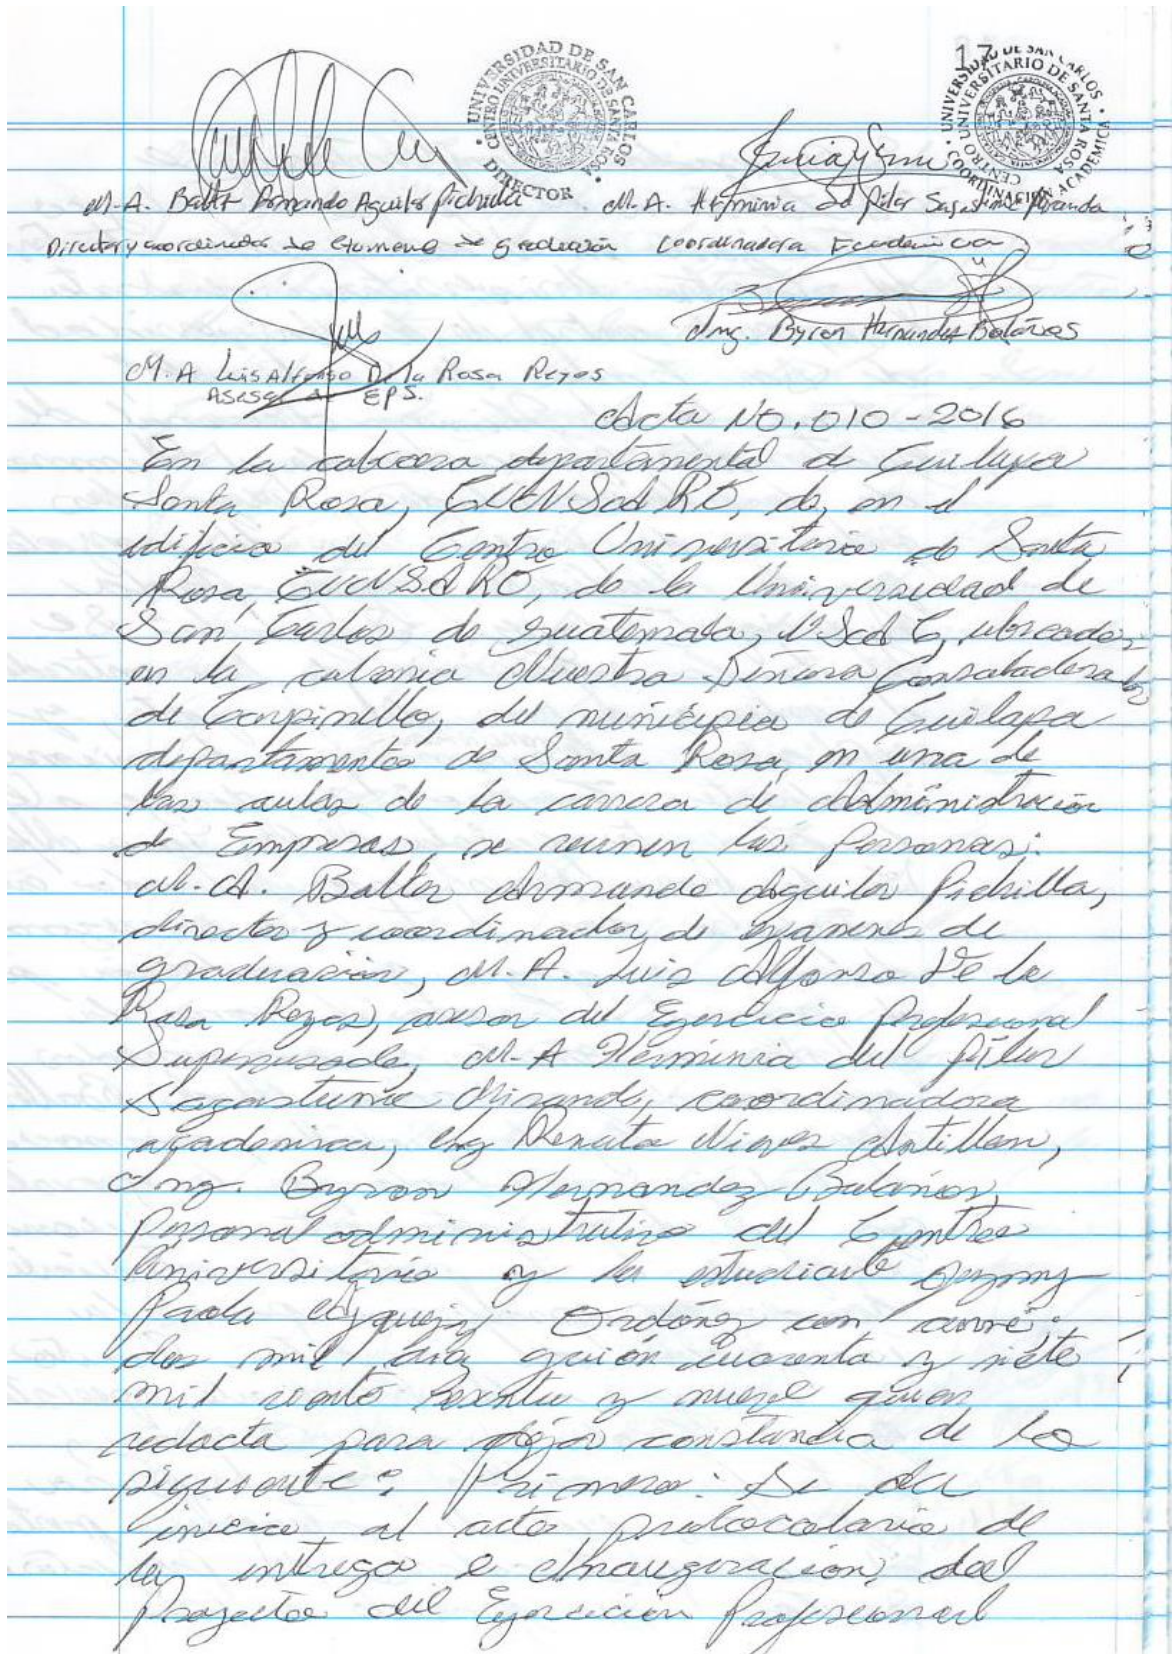 17
UNIVERSIDAD DE SAN CARLOS
CENTRO UNIVERSITARIO DE SANTA ROSA
DIRECTOR
UNIVERSIDAD DE SAN CARLOS
CENTRO UNIVERSITARIO DE SANTA ROSA
COORDINACIÓN ACADEMICA
M.A. Balter Armando Aguilar Pichilla M.A. Herminia del Pilar Sagastume Miranda
Director y coordinador de Examenes de graduación Coordinadora Académica
Ing. Byron Hernandez Bolaños
M.A Luis Alfonso De la Rosa Reyes
Asesor de EPS.
Acta NO. 010-2016
En la cabecera departamental de Cuilapa
Santa Rosa, CUNSARO, de, en el
edificio del Centro Universitario de Santa
Rosa, CUNSARO, de la Universidad de
San Carlos de Guatemala, USAC, ubicado
en la colonia Nuestra Señora
de Carpinello, del municipio de Cuilapa
departamento de Santa Rosa, en una de
las aulas de la carrera de Administración
de Empresas, se reunen las personas:
M.A. Balter Armando Aguilar Pichilla,
director y coordinador de examenes de
graduación, M.A. Luis Alfonso De la
Rosa Reyes, asesor del Ejercicio Profesional
Supervisado, M.A Herminia del Pilar
Sagastume Miranda, coordinadora
academica, Renata Nieves Antillon,
Ing. Byron Hernandez Bolaños,
personal administrativo del Centro
Universitario y la estudiante
Paola Ordoñez con carné:
dos mil diez guión cuarenta y siete
mil ciento sesenta y nueve quien
redacta para dejar constancia de lo
siguiente: Primero: Se da
inicio al acto protocolario de
la entrega e inauguracion, del
Proyecto del Ejercicion Profesional